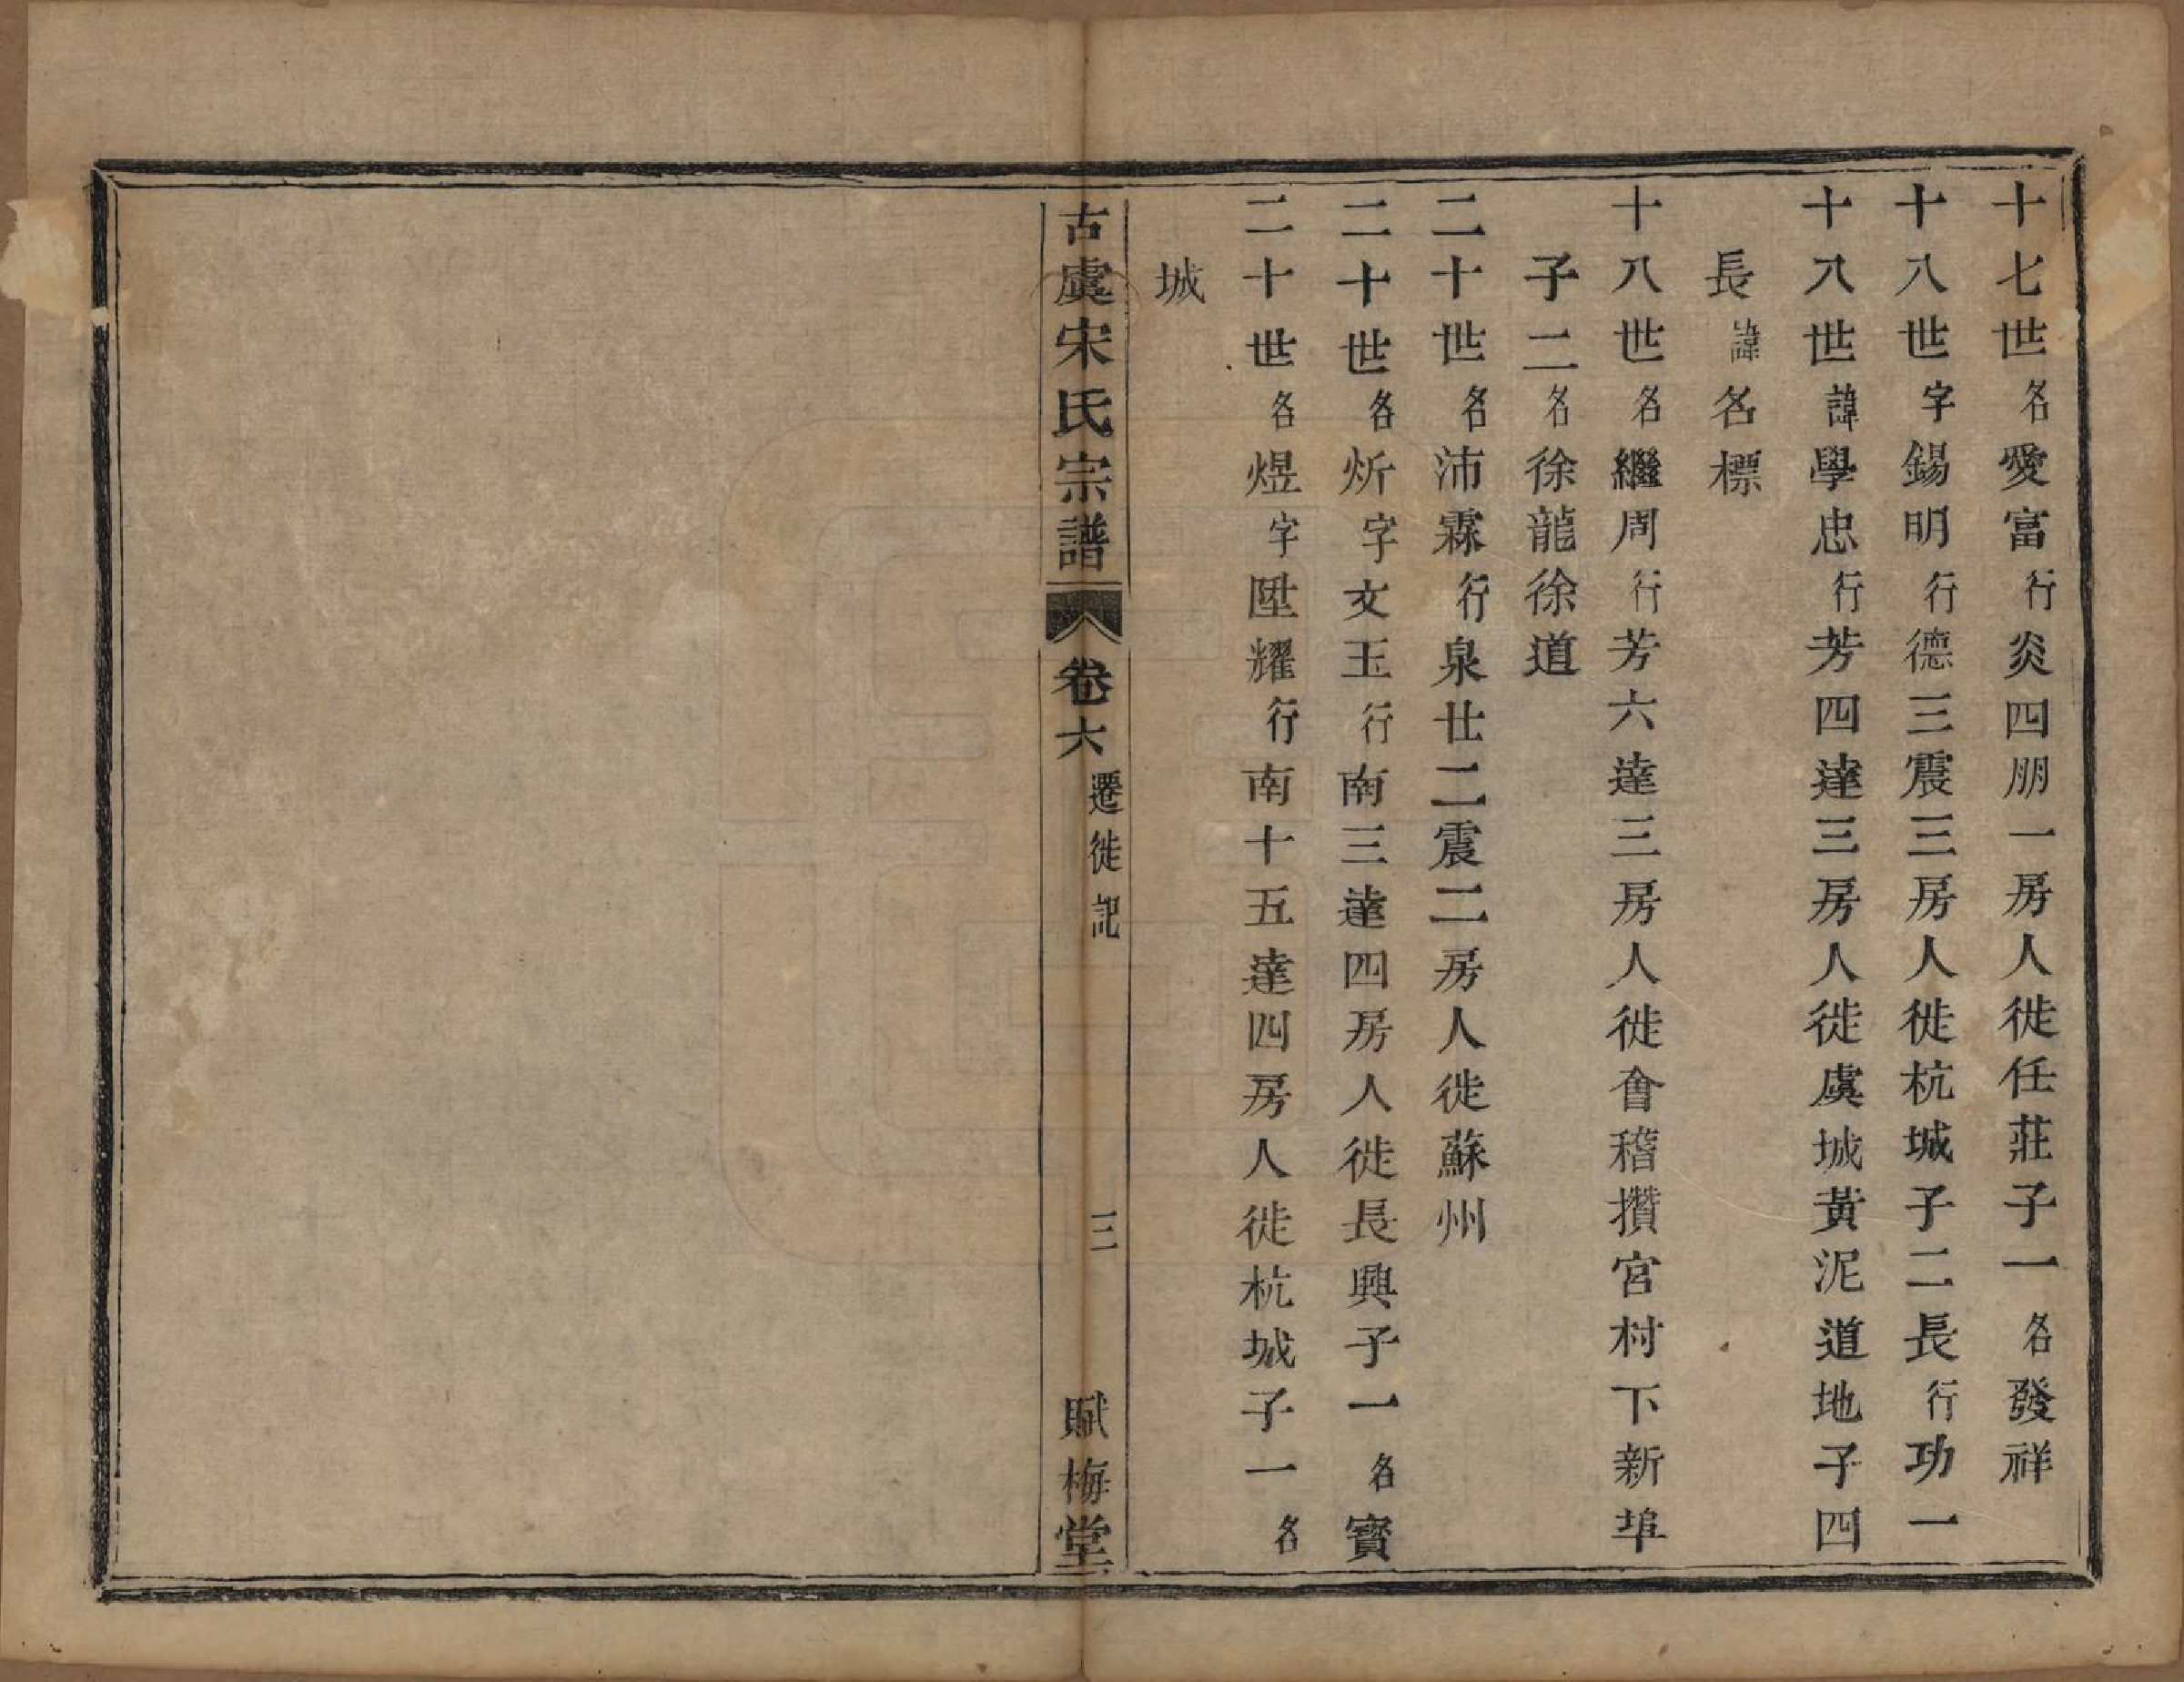 十七世名愛富行炎四朋一房人徙任莊子一名發祥
十八世字錫明行德三震三房人徙杭城子二長行功一
十八世諱學忠行芳四達三房人徙虞城黃泥道地子四
長諱名標
十八世名繼周行芳六達三房人徙會稽攢宮村下新埠
子二名徐龍徐道
二十世名沛霖行泉廿二震二房人徙蘇州
二十世名炘字文玉行南三達四房人徙長興子一名寳
二十世名煜字陞耀行南十五達四房人徙杭城子一名
城
古虞宋氏宗譜
卷六
遷徙記
三
賦梅堂